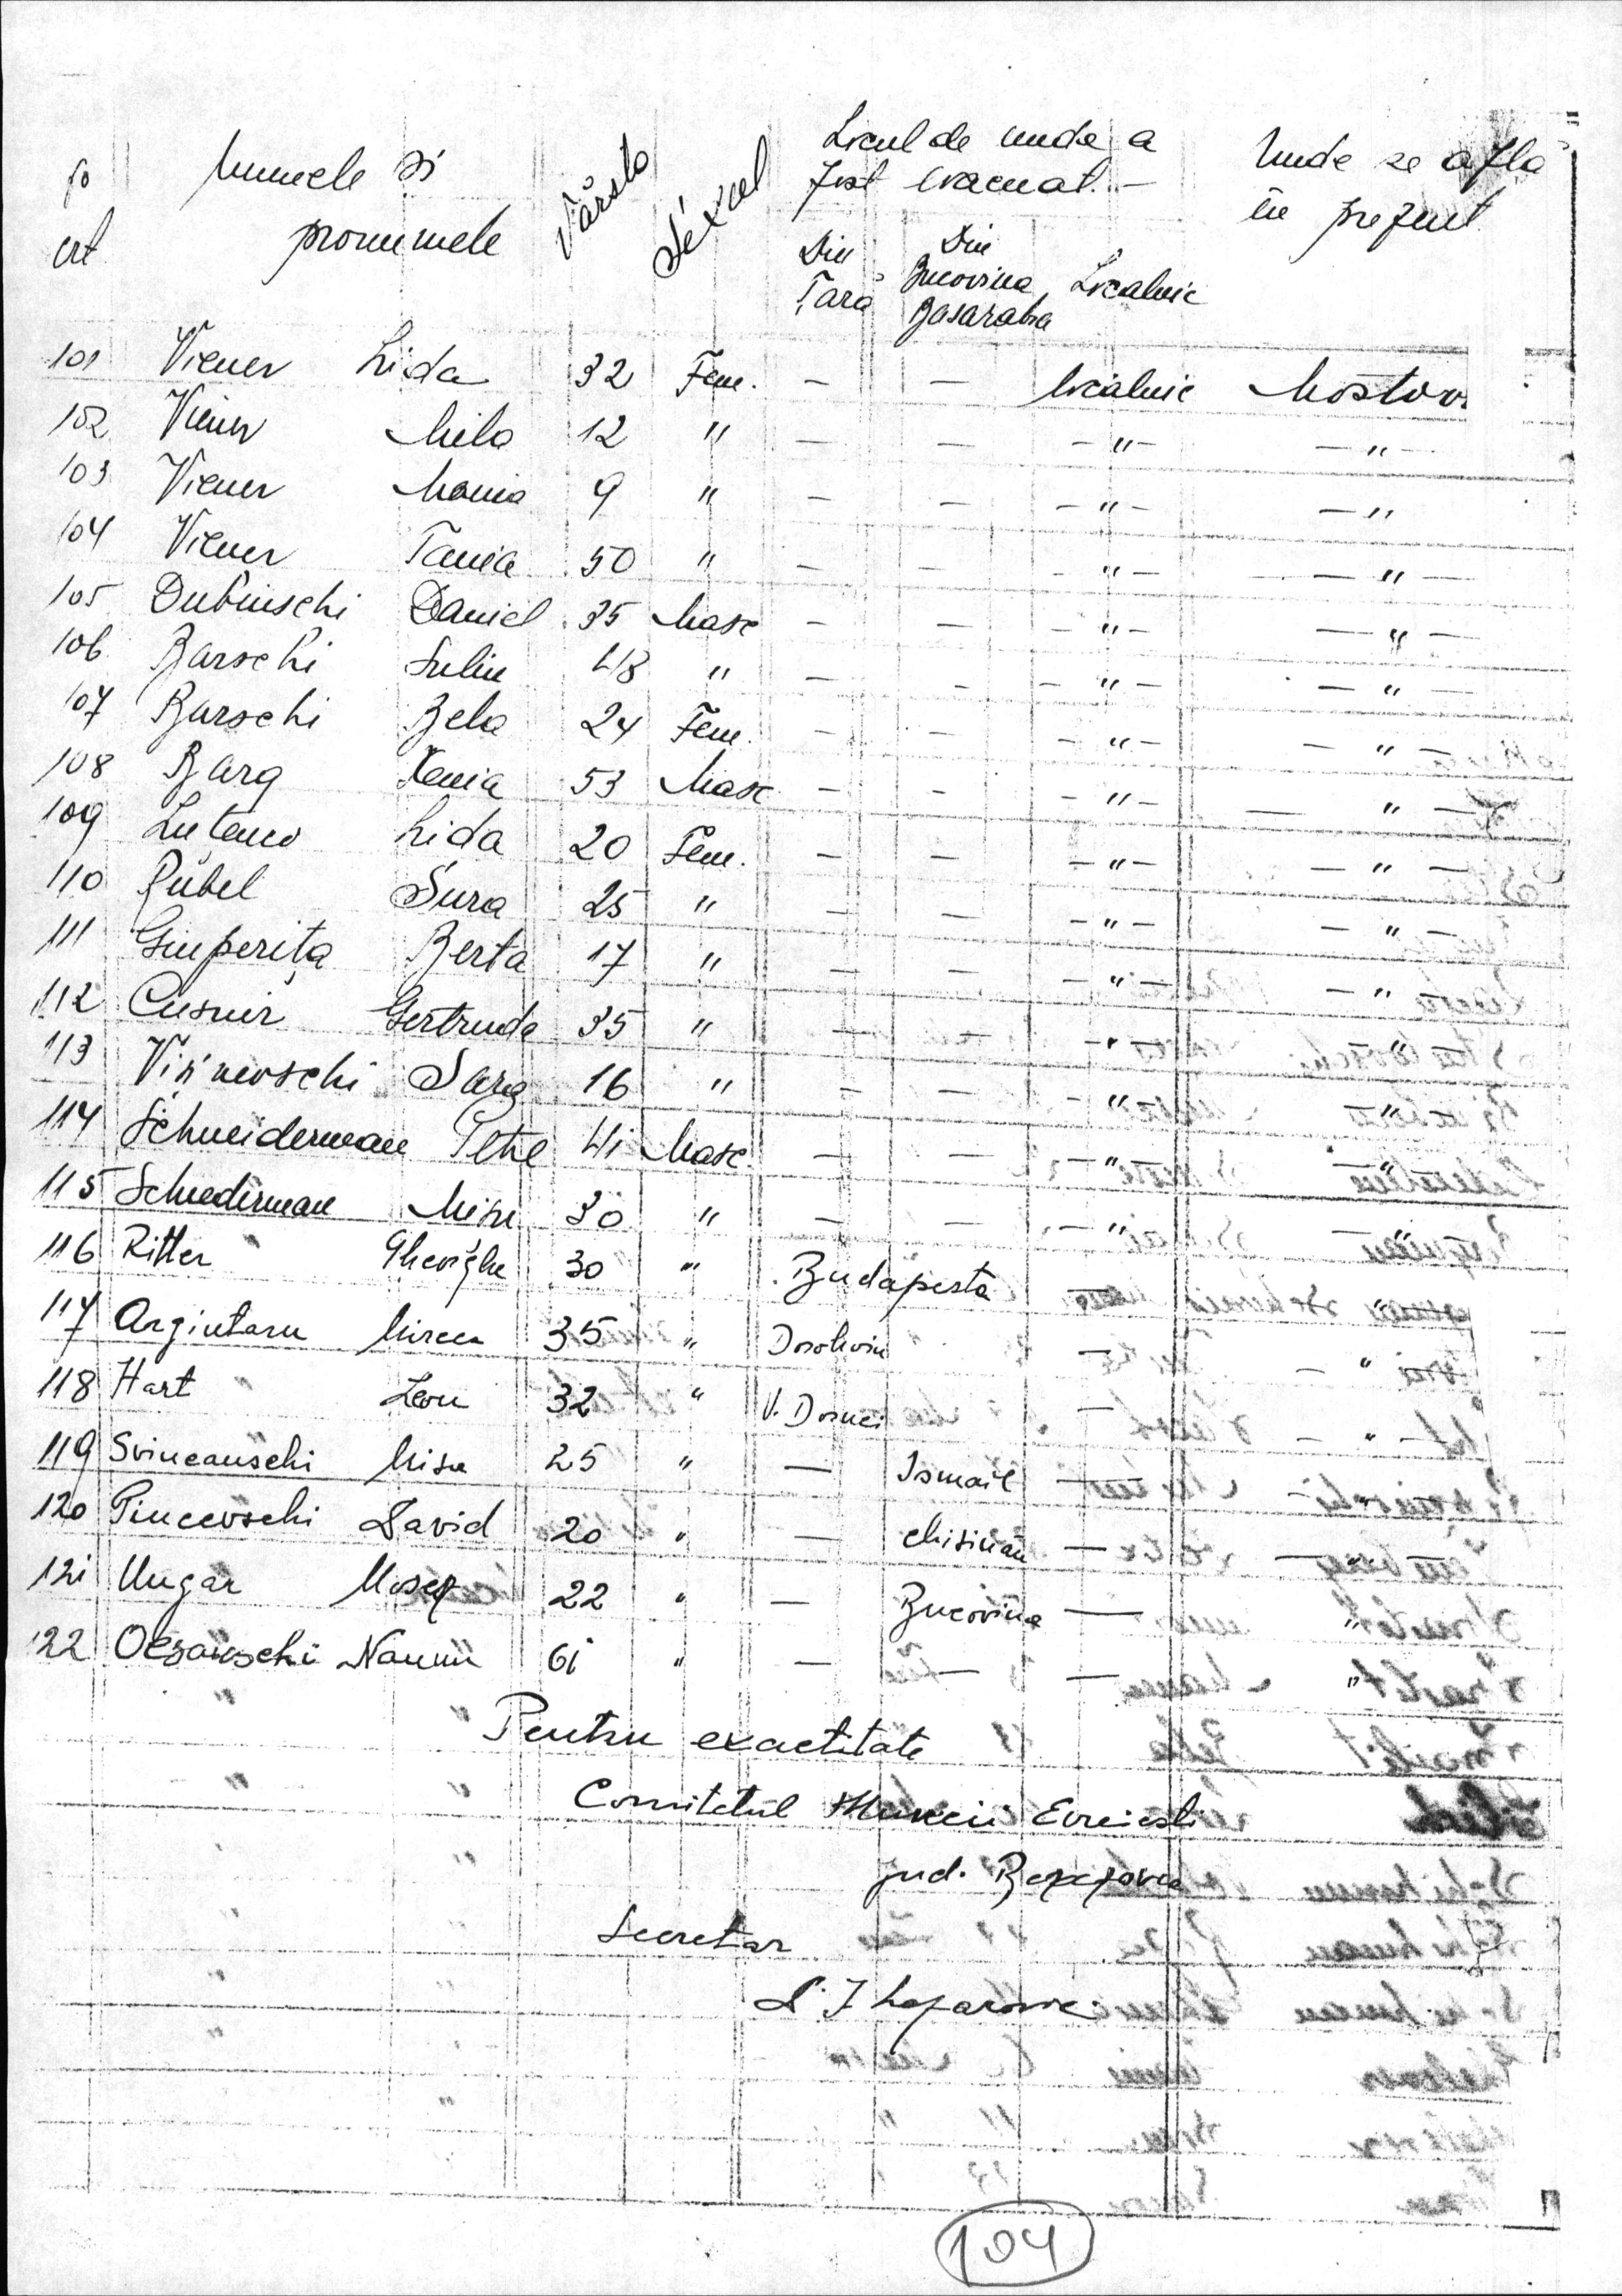 No Numele si Vârsta Sexul Locul de unde a Unde se află
crt. pronumele fost evacuat.- în prezent
Din Țară Din Bucovina Basarabia Localnic
101 Viener Lida 32 Fem. - - localnic Mostovoi
102 Viener Mila 12 " - - -"- -"-
103 Viener Mania 9 " - - -"- -"
104 Viener Tania 50 " - - -"- -"-
105 Dubinschi Daniel 35 Masc - - -"- -"-
106 Barschi Sulim 48 " - - -"- -"-
107 Barschi Bela 24 Fem. - - -"- -"-
108 Barg Xenia 53 Masc - - -"- -"-
109 Lida 20 Fem. - - -"- -"-
110 Rubel Sura 25 " - - -"- -"-
111 Ginperița Berta 17 " - - -"- -"-
112 Cusnir Gertruda 35 " - - -"- "
113 Visnevschi Sara 16 " - - -"- "
114 Schneiderman Petre 41 Masc. - - -"- "
115 Schnederman Misu 30 " - - -"- "
116 Ritter Gheorghe 30 " Budapesta "
117 Argintaru Mircea 35 " Dorohoiu - "-
118 Hart Leon 32 " V. Dornei - -"-
119 Svineanschi Misa 25 " - Ismail - "
120 Pincevschi David 20 " - Chisinau - "
121 Ungar Moses 22 " - Bucovina - "
122 Ocsanschi Naum 61 " - - - "
Pentru exactitate
Comitetul Muncii Evreiesti
jud. Berezovca
Secretar
104